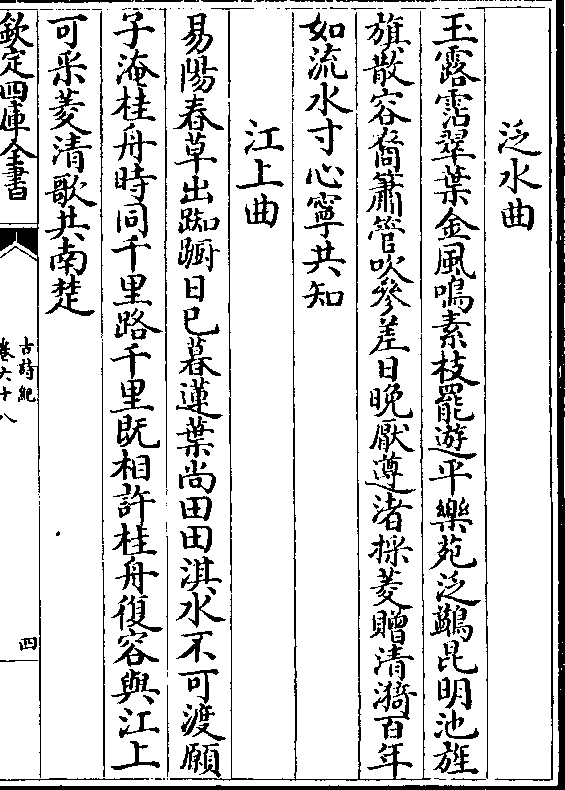 泛水曲
玉露霑翠葉金風鳴素枝罷遊平樂苑泛鷁昆明池旌
旗散容裔簫管吹參差日晚厭遵渚採菱贈清漪百年
如流水寸心寧共知
江上曲
易陽春草出踟躕日已暮蓮葉尚田田淇水不可渡願
子淹桂舟時同千里路千里既相許桂舟復容與江上
可采菱清歌共南楚
欽定四庫全書
古詩紀
卷六十八
四